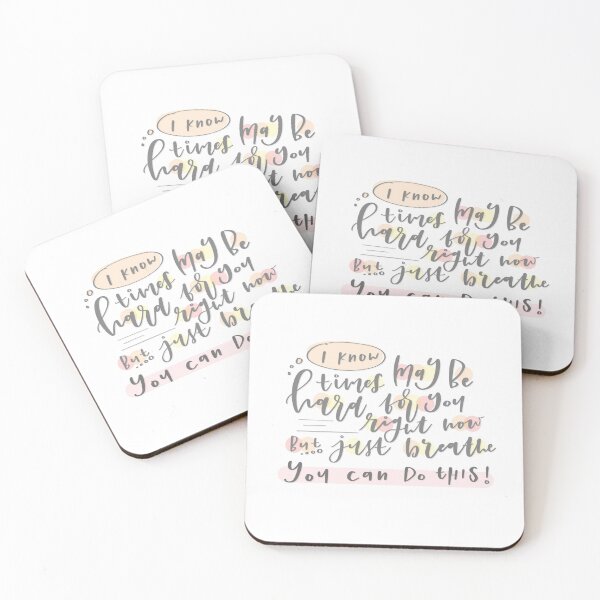 I KNOW
times MAY Be
hard for you
now
I KNOW
times MAY Be
hard for you
right now
But.... just breathe
You can Do tHIS!
I KNOW
times MAY Be
hard for you
right now
But.... just breathe
You can Do
I KNOW
times MAY Be
hard for you
right now
But.... just breathe
You can Do tHIS!